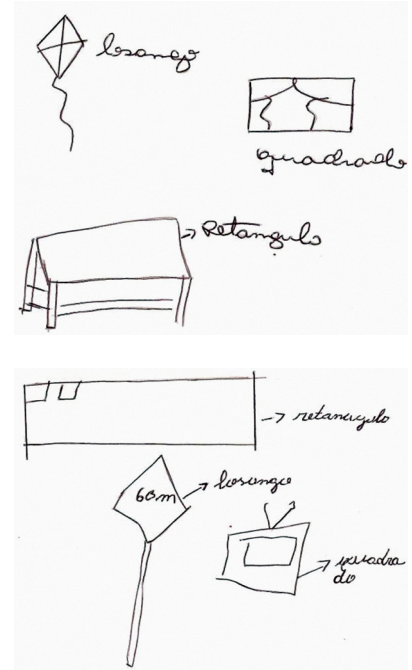 losango
quadrado
Retangulo
retangulo
losango
60m
quadra
do